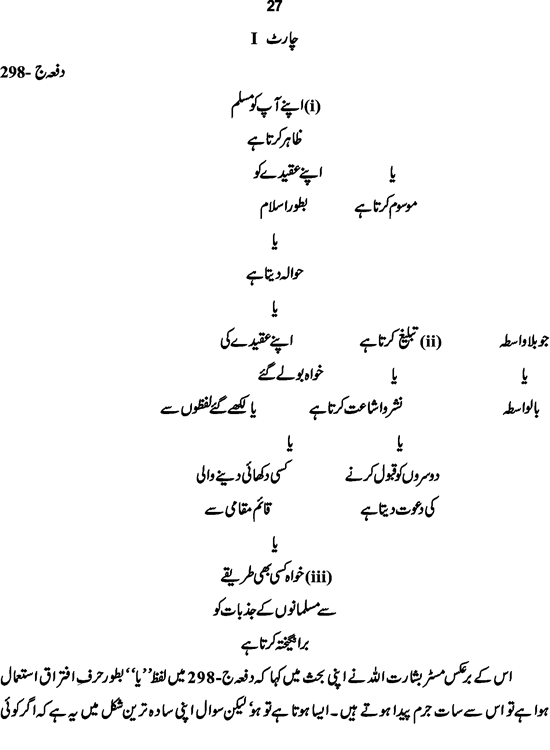 27
چارٹ I
دفعہ ج -298
(i) اپنے آپ کو مسلم
ظاہر کرتا ہے
یا اپنے عقیدے کو
موسوم کرتا ہے بطور اسلام
یا
حوالہ دیتا ہے
یا
جو بلاواسطہ (ii) تبلیغ کرتا ہے اپنے عقیدے کی
یا یا خواہ بولے گئے
بالواسطہ نشرواشاعت کرتا ہے یا لکھے گئے لفظوں سے
یا یا
دوسروں کو قبول کرنے کسی دکھائی دینے والی
کی دعوت دیتا ہے قائم مقامی سے
یا
(iii) خواہ کسی بھی طریقے
سے مسلمانوں کے جذبات کو
برانگیختہ کرتا ہے
اس کے برعکس مسٹر بشارت اللہ نے اپنی بحث میں کہا کہ دفعہ ج-298 میں لفظ ’’یا‘‘ بطور حرفِ افتراق استعمال
ہوا ہے تو اس سے سات جرم پیدا ہوتے ہیں۔ ایسا ہوتا ہے تو ہو‘ لیکن سوال اپنی سادہ ترین شکل میں یہ ہے کہ اگر کوئی